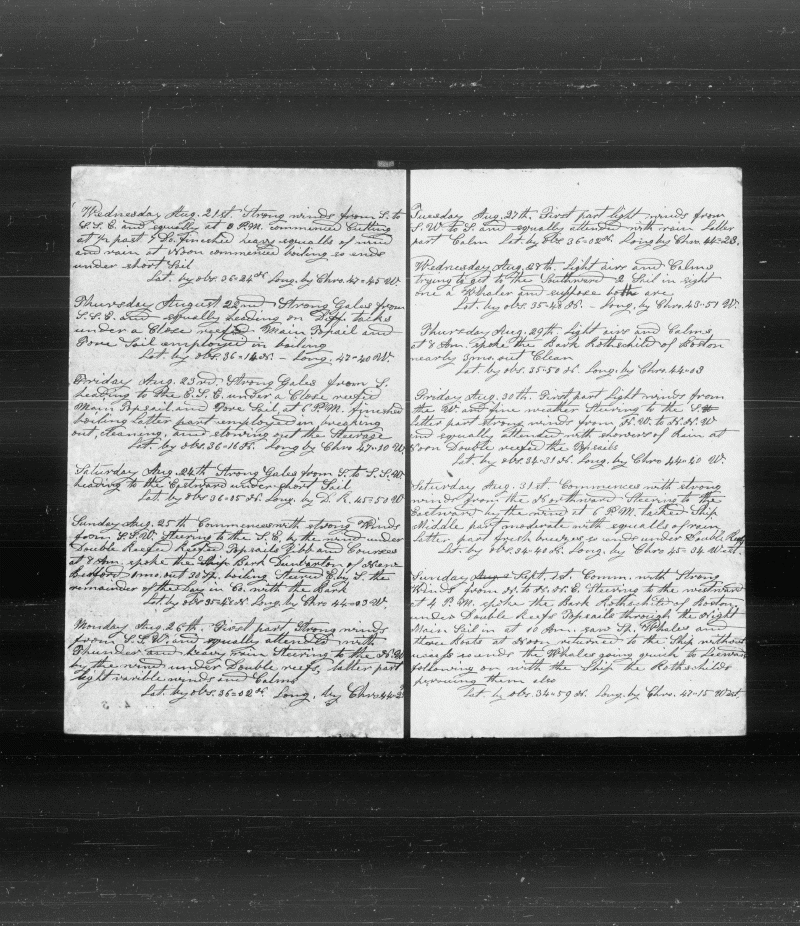 Wednesday Aug. 21st. Strong winds from S. to
S.S.E. and squally at 3 P.M. commenced Cutting
at ½ past 7 Do. finished heavy squalls of wind
and rain at Noon commenced boiling so ends
under short Sail
Lat. by obs. 36-24 N. Long. by Chro. 47-45 W.
Thursday August 22nd Strong Gales from
S.S.E. and squally heading on Diff. tacks
under a Close reefed Main Topsail and
Fore Sail employed in boiling
Lat by obs. 36-14 N. - Long. 47-40 W.
Friday Aug. 23rd. Strong Gales from S.
heading to the E.S.E. under a Close reefed
Main Topsail and Fore Sail at 6 P.M. finished
boiling latter part employed in breaking
out, cleaning, and stowing out the Steerage
Lat. by obs. 36-16 N. Long by Chro 47-10 W.
Saturday Aug. 24th Strong Gales from S. to S.S.W.
heading to the Eastward under short Sail
Lat by obs 36-15 N. Long. by D.R. 45-50 W
Sunday Aug. 25th Commences with strong Winds
from S.S.W. Steering to the S.E. by the wind under
Double Reefed Reefed Topsails Jibb and Courses
at 8 Am. spoke the Ship Bark Dunbarton of New
bedford 1mo. out 30 Sp. boiling Steered E. by S. the
remainder of the day in Co. with the Bark
Lat. by obs 35-46 N Long by Chro 44-03 W.
Monday Aug 26th. First part Strong winds
from S.S.W. and squally attended with
Thunder and heavy rain Steering to the N.W
by the wind under Double reefs, latter part
light varible winds and Calms
Lat. by obs. 36-02 N. Long. by Chro 44-2
Tuesday Aug. 27th. First part light winds from
S.W. to S. and squally attended with rain latter
part Calm Lat. by obs 36-02 N. Long by Chro. 44-23.
Wednesday Aug. 28th. Light airs and Calms
trying to get to the Southward 2 Sail in sight
one a Whaler and suppose both are
Lat. by obs. 35-48 N. - Long. by Chro. 43-57 W.
Thursday Aug. 29th. Light airs and Calms
at 8 Am. spoke the Bark Rothschild of Boston
nearby 3mo. out Clean
Lat. by obs 35-50 N. Long. by Chro. 44-03
Friday Aug. 30th. First part Light winds from
the W. and fine weather Steering to the S.
latter part strong winds from N.W. to N.N.W
and squally attended with showers of rain at
Noon Double reefed the Topsails
Lat. by obs. 34-31 N. Long. by Chro 44-40 W.
Saturday Aug. 31st. Commences with strong
winds from the Northward Steering to the
Eastward by the wind at 6 P.M. tacked Ship
Middle part moderate with squalls of rain
latter part fresh breezes so ends under Double Reefs
Lat. by obs. 34-40 N. Long. by Chro 45-34 West.
Sunday Sept. 1st. Comm. with Strong
Winds from N. to N.N.E. Steering to the westward
at 4 P.M. spoke the Bark Rothschild of Boston
under Double Reefs Topsails through the Night
Main Sail in at 10 Am. saw Sp. Whales and
three boats at Noon returned to the Ship without
success so ends the Whales going quick to Leeward
following on with the Ship the Rothschilds
persuing them also
Lat. by obs. 34-59 N. Long. by Chro. 47-15 West.